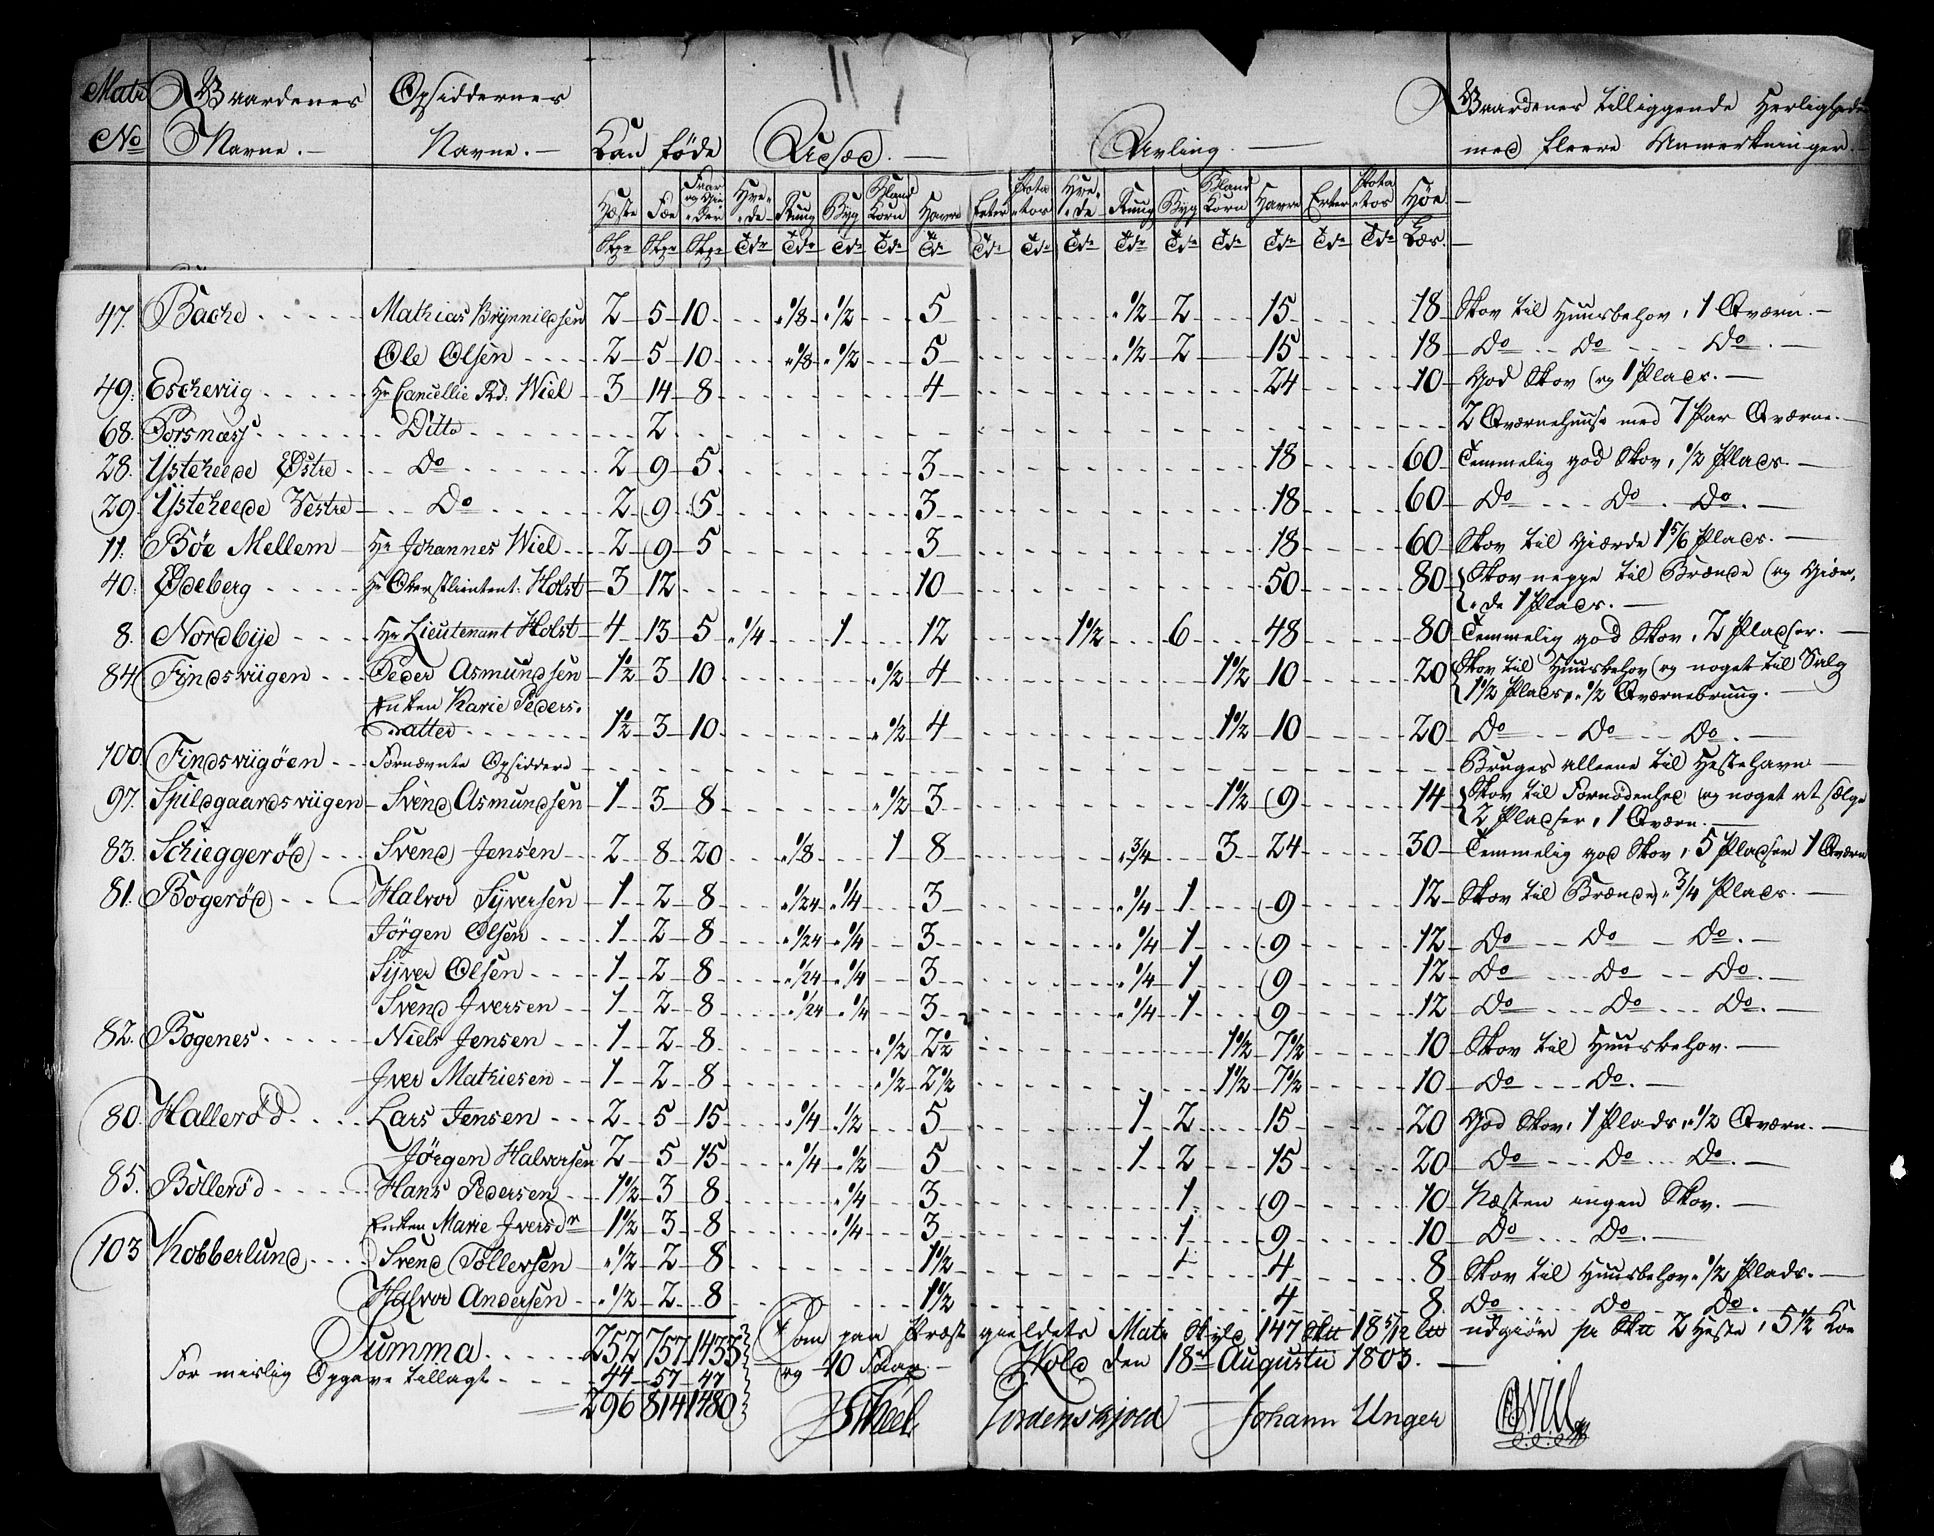 11
Matr No | Gaardenes Navne. | Opsiddernes Navne. | Kan føde | Udsæd. | Avling. | Gaardenes tilliggende Herligheder med fleere Anmerkninger.
Hæste | Fæe | Faar og Gieder | Hvede | Rug | Byg | Bland Korn | Havre | Erter | Potatos | Hvede | Rug | Byg | Bland Korn | Havre | Erter | Potatos | Høe
Stkr | Stkr | Stkr | Tdr | Tdr | Tdr | Tdr | Tdr | Tdr | Tdr | Tdr | Tdr | Tdr | Tdr | Tdr | Tdr | Tdr | Læs.
47. Bache Mathias Brynnildsen 2 5 10 1/8 1/2 5 1/2 2 15 18 Skov til Huusbehov, 1 Qværn.
Ole Olsen 2 5 10 1/8 1/2 5 1/2 2 15 18 Do Do Do.
49. Eschevug Hr Cancellie Rd. Wiel 3 14 8 4 24 10 God Skov og 1 Plads.
68. Porsnæss Ditto 2 2 Qværnehuuse med 7 Par Qværne.
28. Ysteheede Østre Do 2 9 5 3 18 60 Temmelig god Skov, 1/2 Plads.
29. Ysteheede Vestre Do 2 9 5 3 18 60 Do Do Do.
11. Bøe Mellem Hr Johannes Wiel 2 9 5 3 18 60 Skov til Giærde 1 5/6 Plads.
40. Ødeberg Hr Oberstlieutent. Holst 3 12 10 50 80 Skov neppe til Brænde og Giær-
de 1 Plads.
8. Nordbye Hr Lieutenant Holst 4 13 5 1/4 1 12 1 1/2 6 48 80 Temmelig god Skov, 2 Pladser.
84 Findsviigen Peder Asmundsen 1 1/2 3 10 1/2 4 1 1/2 10 20 Skov til Huusbehov og noget til Salg
1 1/2 Plads, 1/2 Qværnebruug.
Enken Karie Peders-
datter 1 1/2 3 10 1/2 4 1 1/2 10 20 Do Do Do.
100. Findsviigøen Fornævnte Opsiddere Bruges alleene til Hestehavn
97. Spildgaardsviigen Svend Asmundsen 1 3 8 1/2 3 1 1/2 9 14 Skov til Fornødenhed og noget at sælge
2 Pladser, 1 Qværn.
83. Schieggerød Svend Jensen 2 8 20 1/8 1 8 3/4 3 24 30 Temmelig god Skov, 5 Pladser 1 Qværn
81. Bogerød Halvor Syversen 1 2 8 1/24 1/4 3 1/4 1 9 12 Skov til Brænde, 3/4 Plads.
Jørgen Olsen 1 2 8 1/24 1/4 3 1/4 1 9 12 Do Do Do.
Syver Olsen 1 2 8 1/24 1/4 3 1/4 1 9 12 Do Do Do.
Svend Iversen 1 2 8 1/24 1/4 3 1/4 1 9 12 Do Do Do.
82. Bogenes Niels Jensen 1 2 8 1/2 2 1/2 1 1/2 7 1/2 10 Skov til Huusbehov.
Iver Mathiesen 1 2 8 1/2 2 1/2 1 1/2 7 1/2 10 Do Do.
80. Hallerød Lars Jensen 2 5 15 1/4 1/2 5 1 2 15 20 God Skov, 1 Plads, 1/2 Qværn.
Jørgen Halvorsen 2 5 15 1/4 1/2 5 1 2 15 20 Do Do Do.
85. Bollerød Hans Pedersen 1 1/2 3 8 1/4 3 1 9 10 Næsten ingen Skov.
Enken Marie Iversdr 1 1/2 3 8 1/4 3 1 9 10 Do Do.
103 Kobberlund Svend Tollersen 1/2 2 8 1 1/2 4 8 Skov til Huusbehov, 1/2 Plads.
Halvor Andersen 1/2 2 8 1 1/2 4 8 Do Do Do.
Summa 252 757 1433 Som paa Præstegieldets Matr Skyld 147 Skt 18 5/12 udgiør pr Skt 2 Heste, 5 1/2 Køe
For meslig Opgave tillagt 44 57 47 og 10 Faar. Hold den 18de Augustii 1803.
296 814 1480 Tordenskjold Johann Unger Wiel